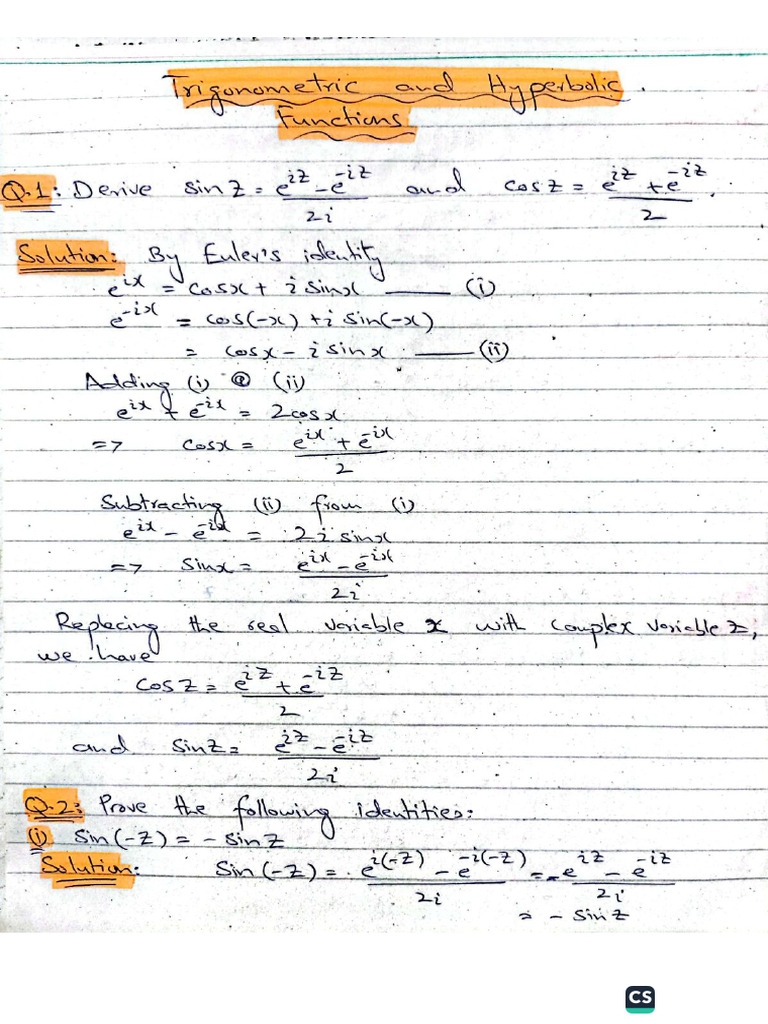 Trigonometric and Hyperbolic
Functions
Q.1: Derive sin z = (e^{iz} - e^{-iz})/2i and cos z = (e^{iz} + e^{-iz})/2.
Solution: By Euler's identity
e^{ix} = cosx + i sinx ——— (i)
e^{-ix} = cos(-x) + i sin(-x)
= cosx - i sinx ——— (ii)
Adding (i) @ (ii)
e^{ix} + e^{-ix} = 2cosx
=> cosx = (e^{ix} + e^{-ix})/2
Subtracting (ii) from (i)
e^{ix} - e^{-ix} = 2i sinx
=> sinx = (e^{ix} - e^{-ix})/2i
Replacing the real variable x with complex variable z,
we have
cos z = (e^{iz} + e^{-iz})/2
and sin z = (e^{iz} - e^{-iz})/2i
Q.2: Prove the following identities:
(i) sin(-z) = - sin z
Solution: Sin(-z) = (e^{i(-z)} - e^{-i(-z)})/2i = - (e^{iz} - e^{-iz})/2i
= - sin z
CS